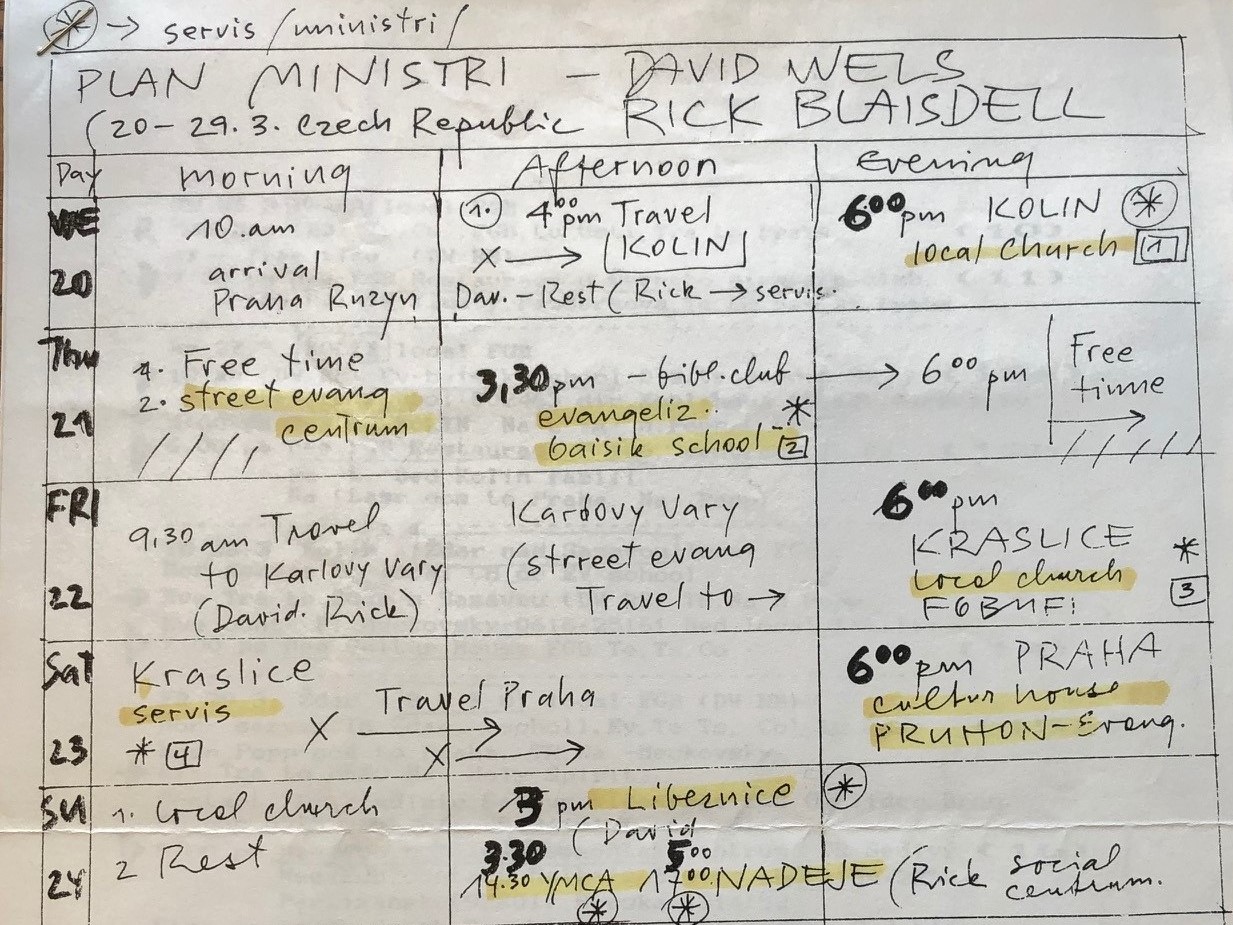 * → servis/ministri/
PLAN MINISTRI — DAVID WELS
RICK BLAISDELL
(20–29.3. Czech Republic
Day morning Afternoon Evening
WE
20
10.am
arrival
Praha Ruzyn
1. 4 00 pm Travel
X → KOLIN
Dav.–Rest (Rick → servis.
6 00 pm KOLIN *
local church 1
Thu
21
1. Free time
2. street evang
centrum
3,30 pm – bibl.club → 6 00 pm
evangeliz.. *
baisik school 2
Free
time
→
FRI
22
9,30 am Travel
to Karlovy Vary
(David. Rick)
Karlovy Vary
(strreet evang
Travel to →
6 00 pm
KRASLICE *
local church 3
Sat
23
Kraslice
servis
* 4
Travel Praha
X →
X →
6 00 pm PRAHA
cultur house
PRUHON–Evang.
SU
24
1. local church
2 Rest
3 pm Libeznice *
(David
3.30 5 00
14.30 YMCA 17 00 NADEJE (Rick social
centrum.
* *